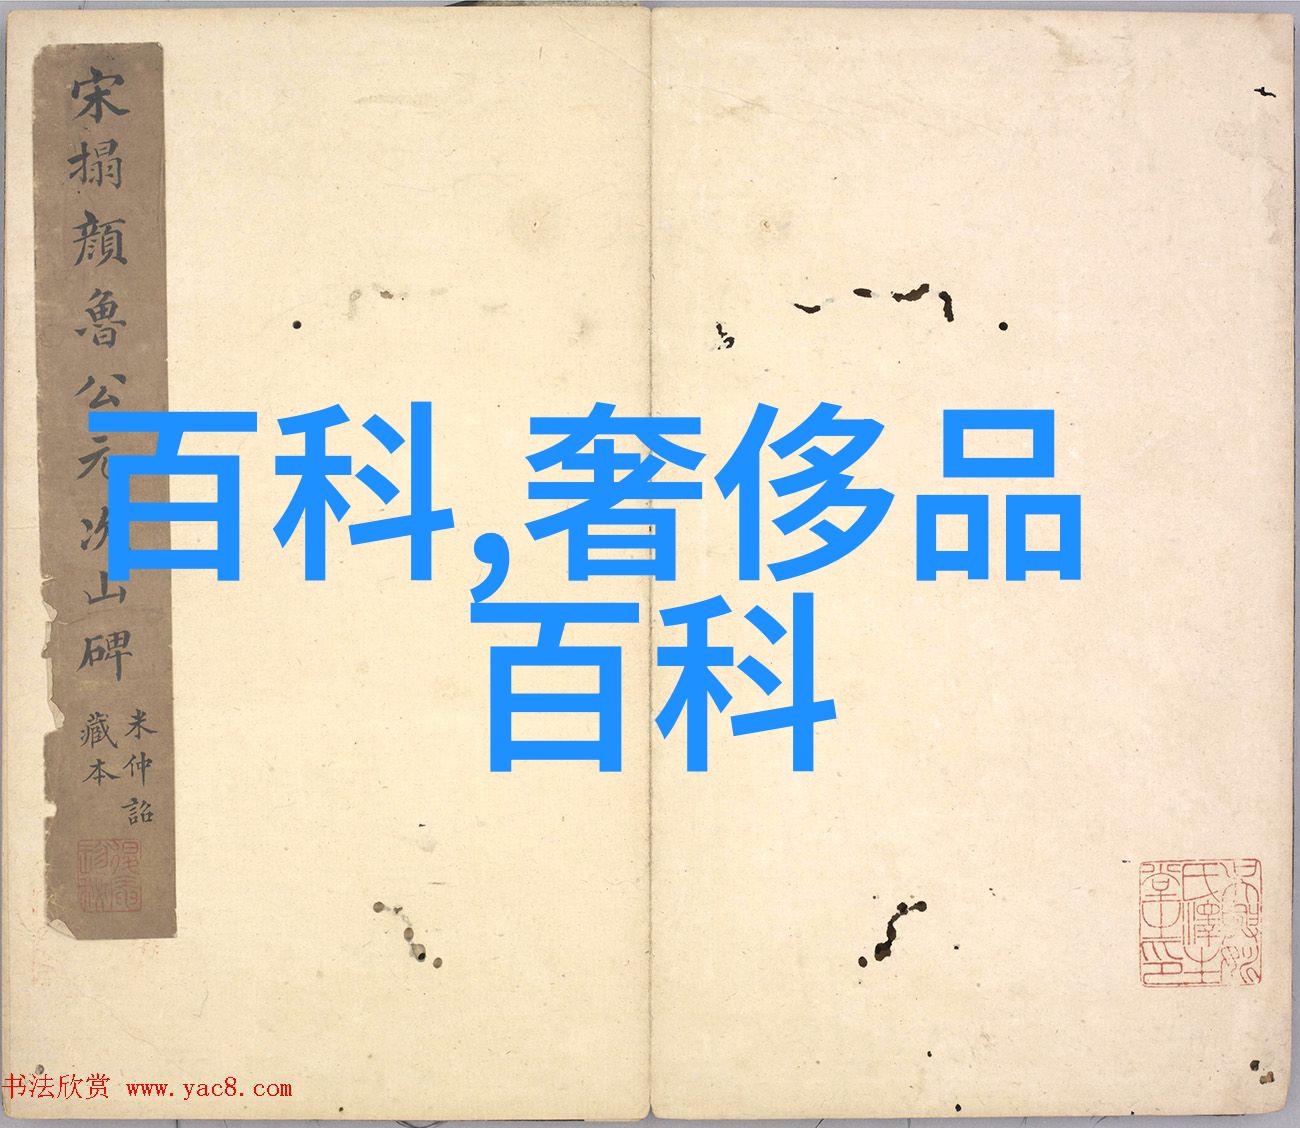 宋搨顔魯公元次山碑
米仲詔
藏本
百科,奢侈品
百科
书法欣赏 www.yac8.com